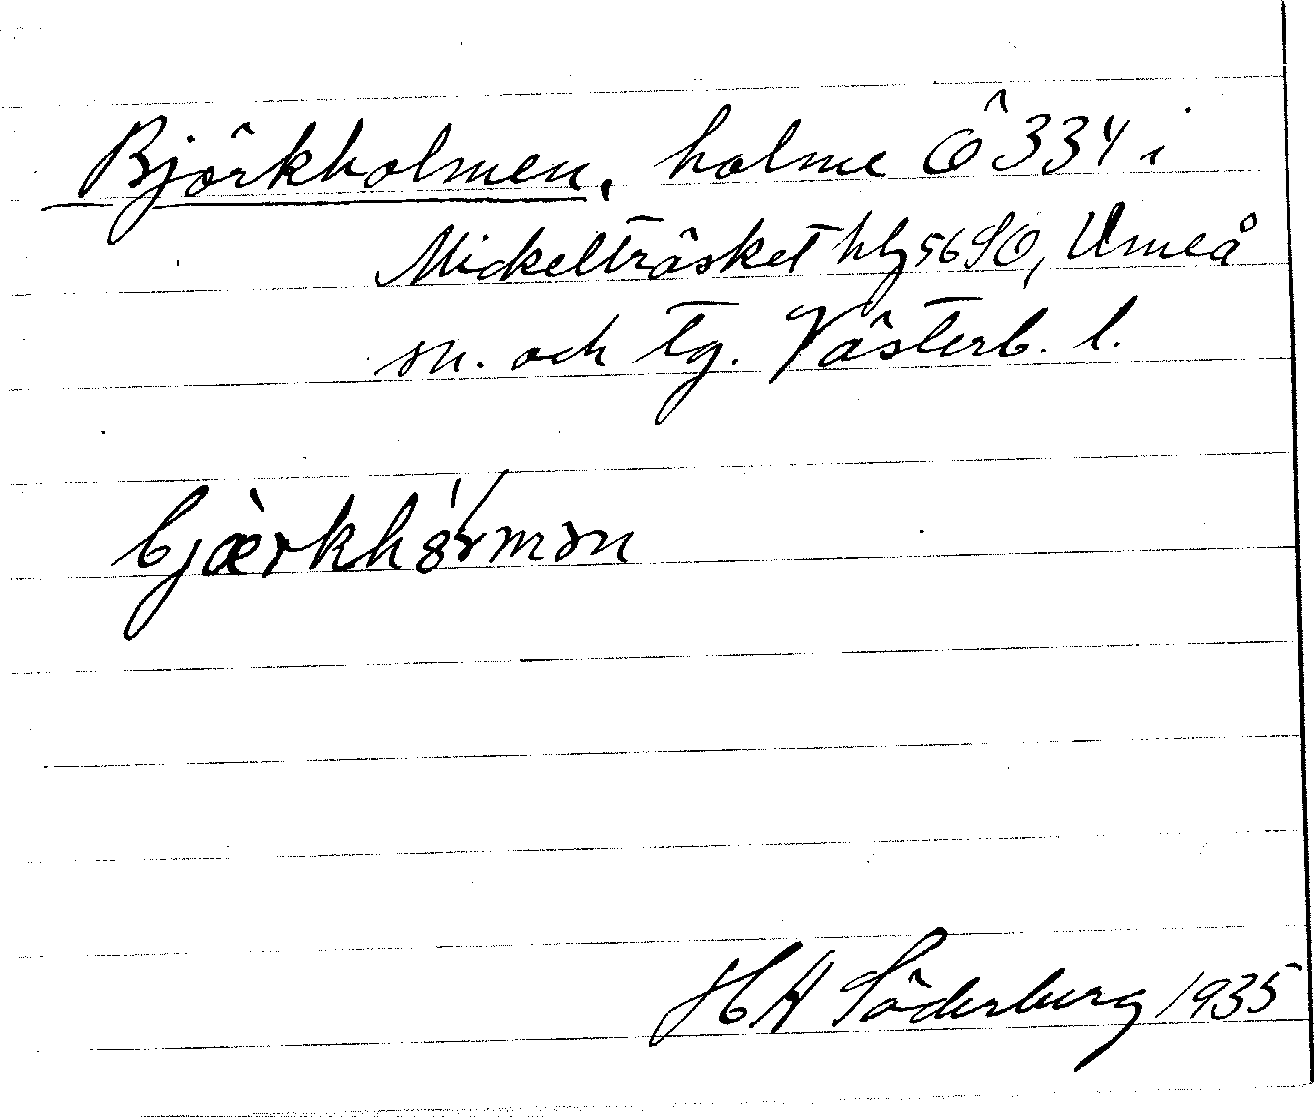 Björkholmen, holme Ö 334 i
Mickelträsket hlg 56 SO, Umeå
sn. och tg. Västerb. l.
bjærkh
HA Söderberg 1935